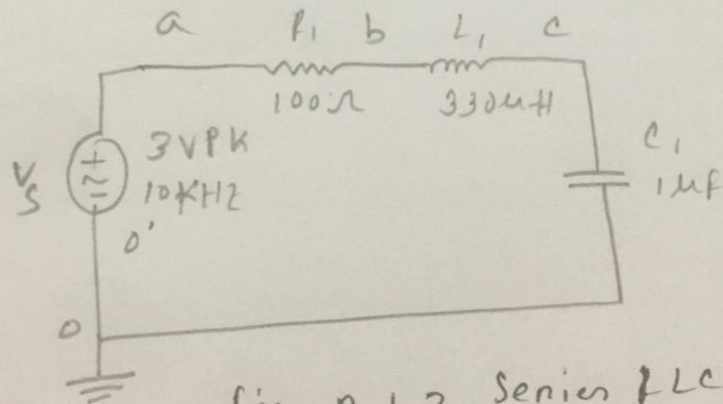 a R1 b L1 c
100Ω 330uH
Vs + ~ − 3VPK
10KHZ
0°
C1
1µF
0
Series RLC